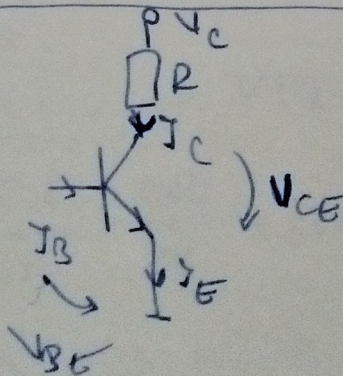 V_C
R
I_C
V_CE
I_B
I_E
V_BE